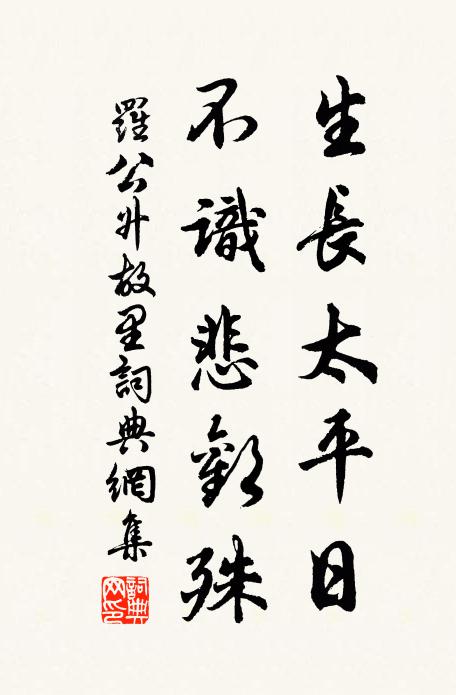 生長太平日
不識悲歡殊
羅公升故里詞典網集
詞典网印